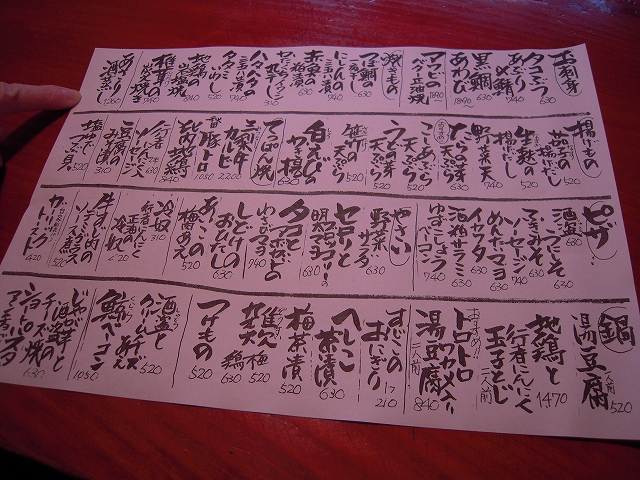 お刺身
タコブツ 630
あぶり〆鯖 740
黒鯛 630
あわび 1890〜
アワビの
バター正油焼 1890
焼きもの
つぼ鯛の
一夜干 630
にしんの
三五八漬
赤魚の
粕漬
ハタハタの
三五八漬 310
タタミいわし 520
地鶏の
山椒焼 940
椎茸の
炙り焼き
揚げもの
茄子の
揚げだし 520
生麩の
揚げだし 520
野菜天 740
たらの芽
天ぷら 630
こしあぶら
天ぷら 520
うどの芽
天ぷら 520
笹竹の
天ぷら
白えびの
かき揚 630
てっぱん焼
三梨牛
カルビ 2200
豚トロ 1050
比内地鶏 840
行者
ソーセージ
二本入 430
豆腐の
お漬物 310
塩うで
ぶた耳 520
ピザ
酒盗 630
うこじそ 630
ねぎみそ 630
ソーセージ 740
めんたいマヨ
イカワタ 630
酒粕サラミ 630
ゆずこしょう
ベーコン 740
やさい
野菜サラダ 630
セロリと
ブロッコリーの
明太マヨ 630
タコと
アボカドの
わさびマヨ 740
しどけの
おひたし 630
あいこの
梅肉あえ 520
冷奴 310
行者にんにく
正油の
冷奴 420
牛すじ肉の
デミソース煮 520
ガーリック
トースト 420
鍋
湯豆腐 一人前 520
地鶏と
行者にんにく
玉子とじ 二人前 1470
おすすめ!!
トロトロ
ワカメ入り
湯豆腐 840
すじこの
おにぎり 1ヶ 210
へしこ
茶漬 630
梅茶漬 520
雑炊 梅 520
鶏 630
つけもの 520
酒盗と
クリームチーズ 520
鯨ベーコン 1050
じゃがいもと
酒盗の
チーズ焼 630